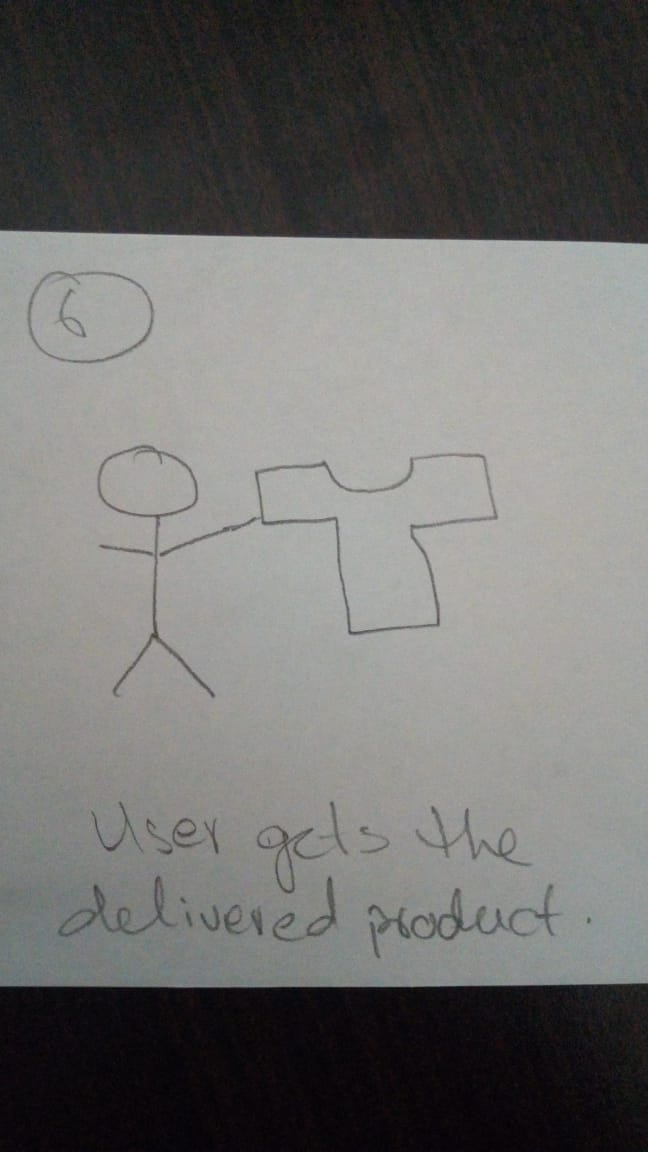 6
User gets the
delivered product.